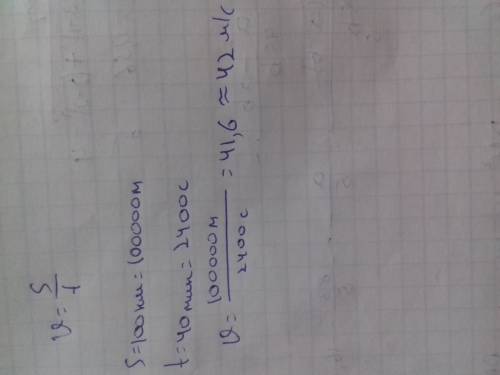 υ = S/t
S = 100км = 100000м
t = 40мин = 2400с
υ = 100000м/2400с = 41,6 ≈ 42 м/с